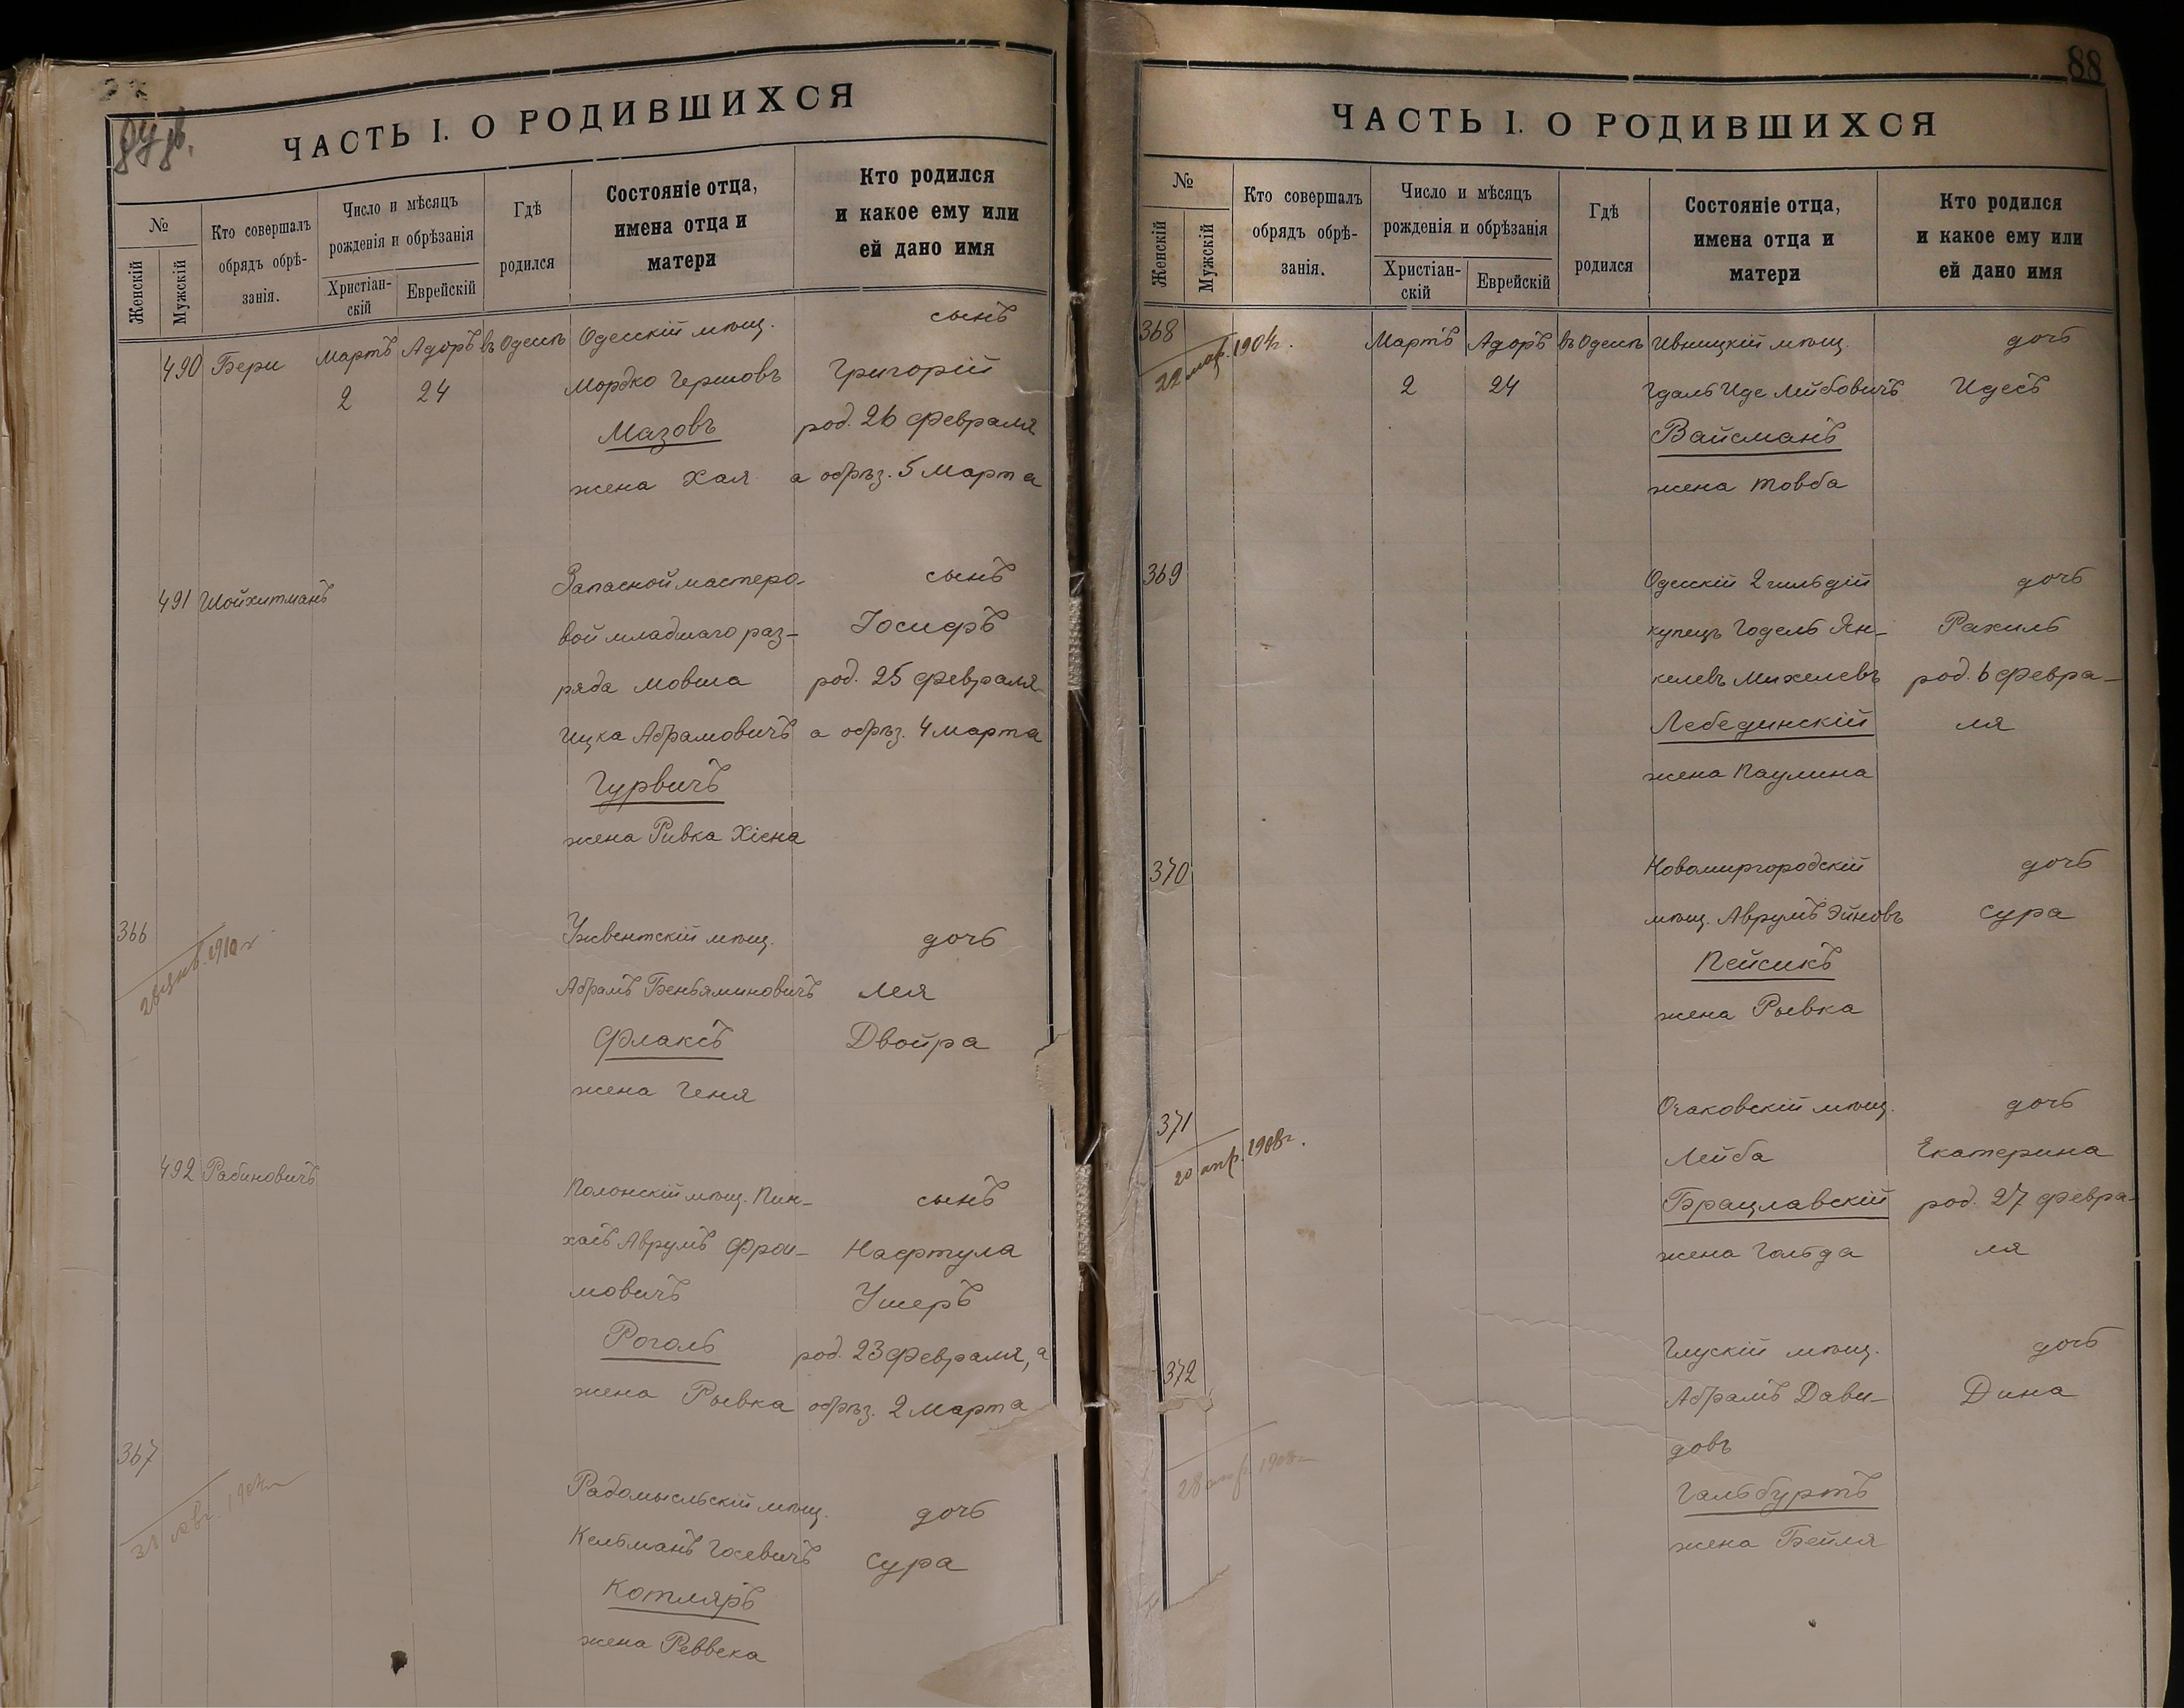 ЧАСТЬ I. О РОДИВШИХСЯ
№
Женскій
Мужскій
Кто совершалъ
обрядъ обрѣ-
занія.
Число и мѣсяцъ
рожденія и обрѣзанія
Христіан-
скій
Еврейскій
Гдѣ
родился
Состояніе отца,
имена отца и
матери
Кто родился
и какое ему или
ей дано имя
490 Бери Мартъ Адоръ въ Одессѣ Одесскій мѣщ. сынъ
2 24 Мордко Гершовъ Григорій
Мазовъ род. 26 февраля
жена Хая а обрѣз. 5 марта
491 Шойхитманъ Запасной мастеро- сынъ
вой младшаго раз- Іосифъ
ряда Мовша род. 25 февраля
Ицка Абрамовичъ а обрѣз. 4 марта
Гурвичъ
жена Ривка Хіена
366 Ужвентскій мѣщ. дочь
Абрамъ Беньяминовичъ Лея
Флаксъ Двойра
жена Геня
492 Рабиновичъ Полонскій мѣщ. Пин- сынъ
хасъ Аврумъ Фрои- Нафтула
мовичъ Ушеръ
Роголь род. 23 февраля, а
жена Рывка обрѣз. 2 марта
367 Радомысльскій мѣщ. дочь
Кельманъ Госевичъ Сура
Котляръ
жена Реввека
88
ЧАСТЬ I. О РОДИВШИХСЯ
№
Женскій
Мужскій
Кто совершалъ
обрядъ обрѣ-
занія.
Число и мѣсяцъ
рожденія и обрѣзанія
Христіан-
скій
Еврейскій
Гдѣ
родился
Состояніе отца,
имена отца и
матери
Кто родился
и какое ему или
ей дано имя
368 Мартъ Адоръ въ Одессѣ Ивницкій мѣщ. дочь
22 мар. 1904 г.
2 24 Гдаль Иде Лейбовичъ Идесъ
Вайсманъ
жена Товба
369 Одесскій 2 гильдій дочь
купецъ Годель Ян- Рахиль
келевъ Михелевъ род. 6 февра-
Лебединскій ля
жена Паулина
370 Новомиргородскій дочь
мѣщ. Аврумъ Эйновъ Сура
Пейсикъ
жена Рывка
371 Очаковскій мѣщ. дочь
20 апр. 1908 г.
Лейба Екатерина
Брацлавскій род. 27 февра-
жена Гольда ля
372 Глускій мѣщ. дочь
Абрамъ Дави- Дина
довъ
28 апр. 1908
Гальбуртъ
жена Бейля